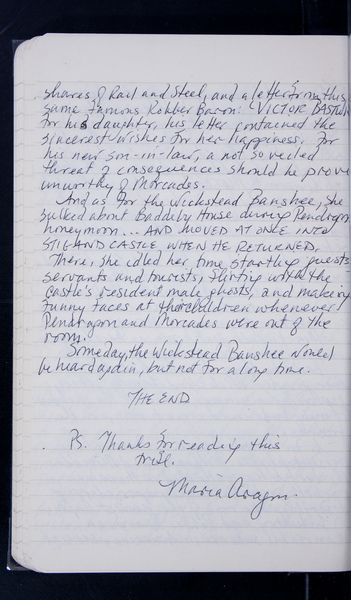 shares of Rail and Steel, and a letter from this
same famous Robber Baron: VICTOR
For his daughter, his letter contained the
sincerest wishes for her happiness. For
his new son-in-law, a not so veiled
threat of consequences should he prove
unworthy of Morcades.
And as for the Wickstead Banshee, she
sulked about Baddeby House during Pendragon
honeymoon... AND MOVED AT ONCE INTO
STIGAND CASTLE WHEN HE RETURNED.
There, she idled her time, startling guests
servants and tourists, flirting with the
Castle's resident male ghosts, and making
funny faces at the children whenever
Pendragon and Morcades were out of the
room.
Someday, the Wickstead Banshee would
be heard again, but not for a long time.
THE END
Ps. Thanks for reading this
trifle.
Maria Aragon.